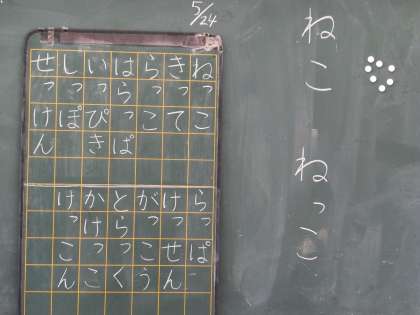 ねこ
ねっこ
5/24
ねっこ
きって
らっこ
はらっぱ
いっぴき
しっぽ
せっけん
らっぱ
けっせん
がっこう
とらっく
かけっこ
けっこん